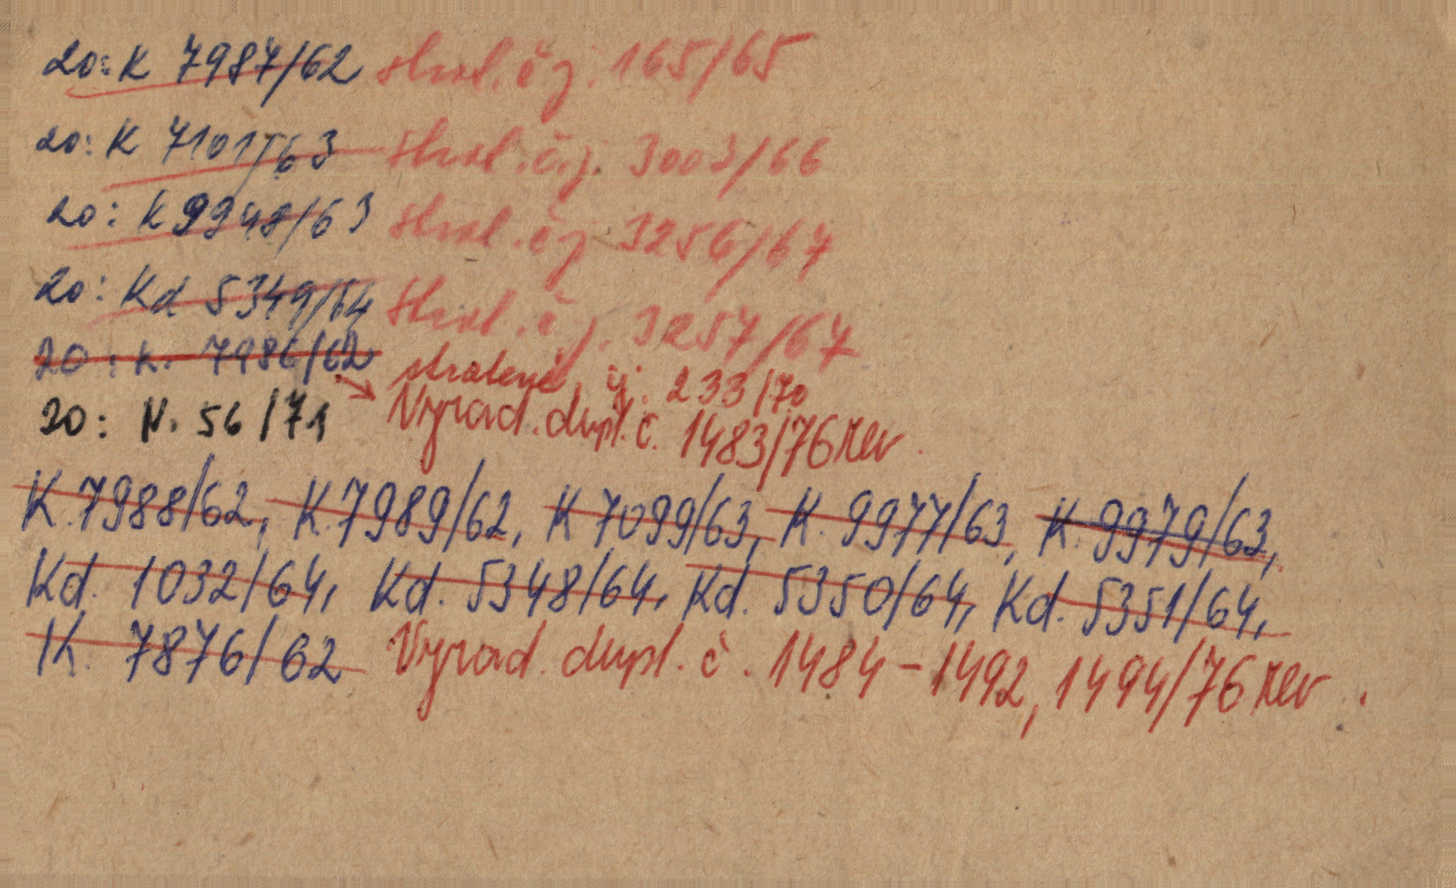 20: K 7987/62 strat. č j. 165/65
20: K 7101/63 strat. č. j. 3003/66
20: K 9948/63 strat. č j 3256/67
20: Kd 5349/64 strat. č j. 3257/67
20: K. 7986/62 č j. 233/70
20: N. 56/71 Vyrad. dupl. č. 1483/76 rev.
K. 7988/62, K. 7989/62, K 7099/63, K. 9977/63, K. 9979/63,
Kd. 1032/64, Kd. 5348/64, Kd. 5350/64, Kd. 5351/64,
K. 7876/62 Vyrad. dupl. č. 1484-1492, 1494/76 rev.